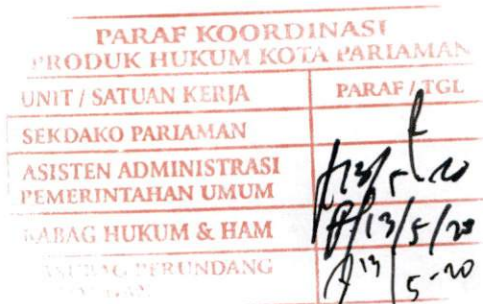 PARAF KOORDINASI
PRODUK HUKUM KOTA PARIAMAN
UNIT / SATUAN KERJA PARAF / TGL
SEKDAKO PARIAMAN
ASISTEN ADMINISTRASI
PEMERINTAHAN UMUM
KABAG HUKUM & HAM 13/5/20
PERUNDANG 13/5-20